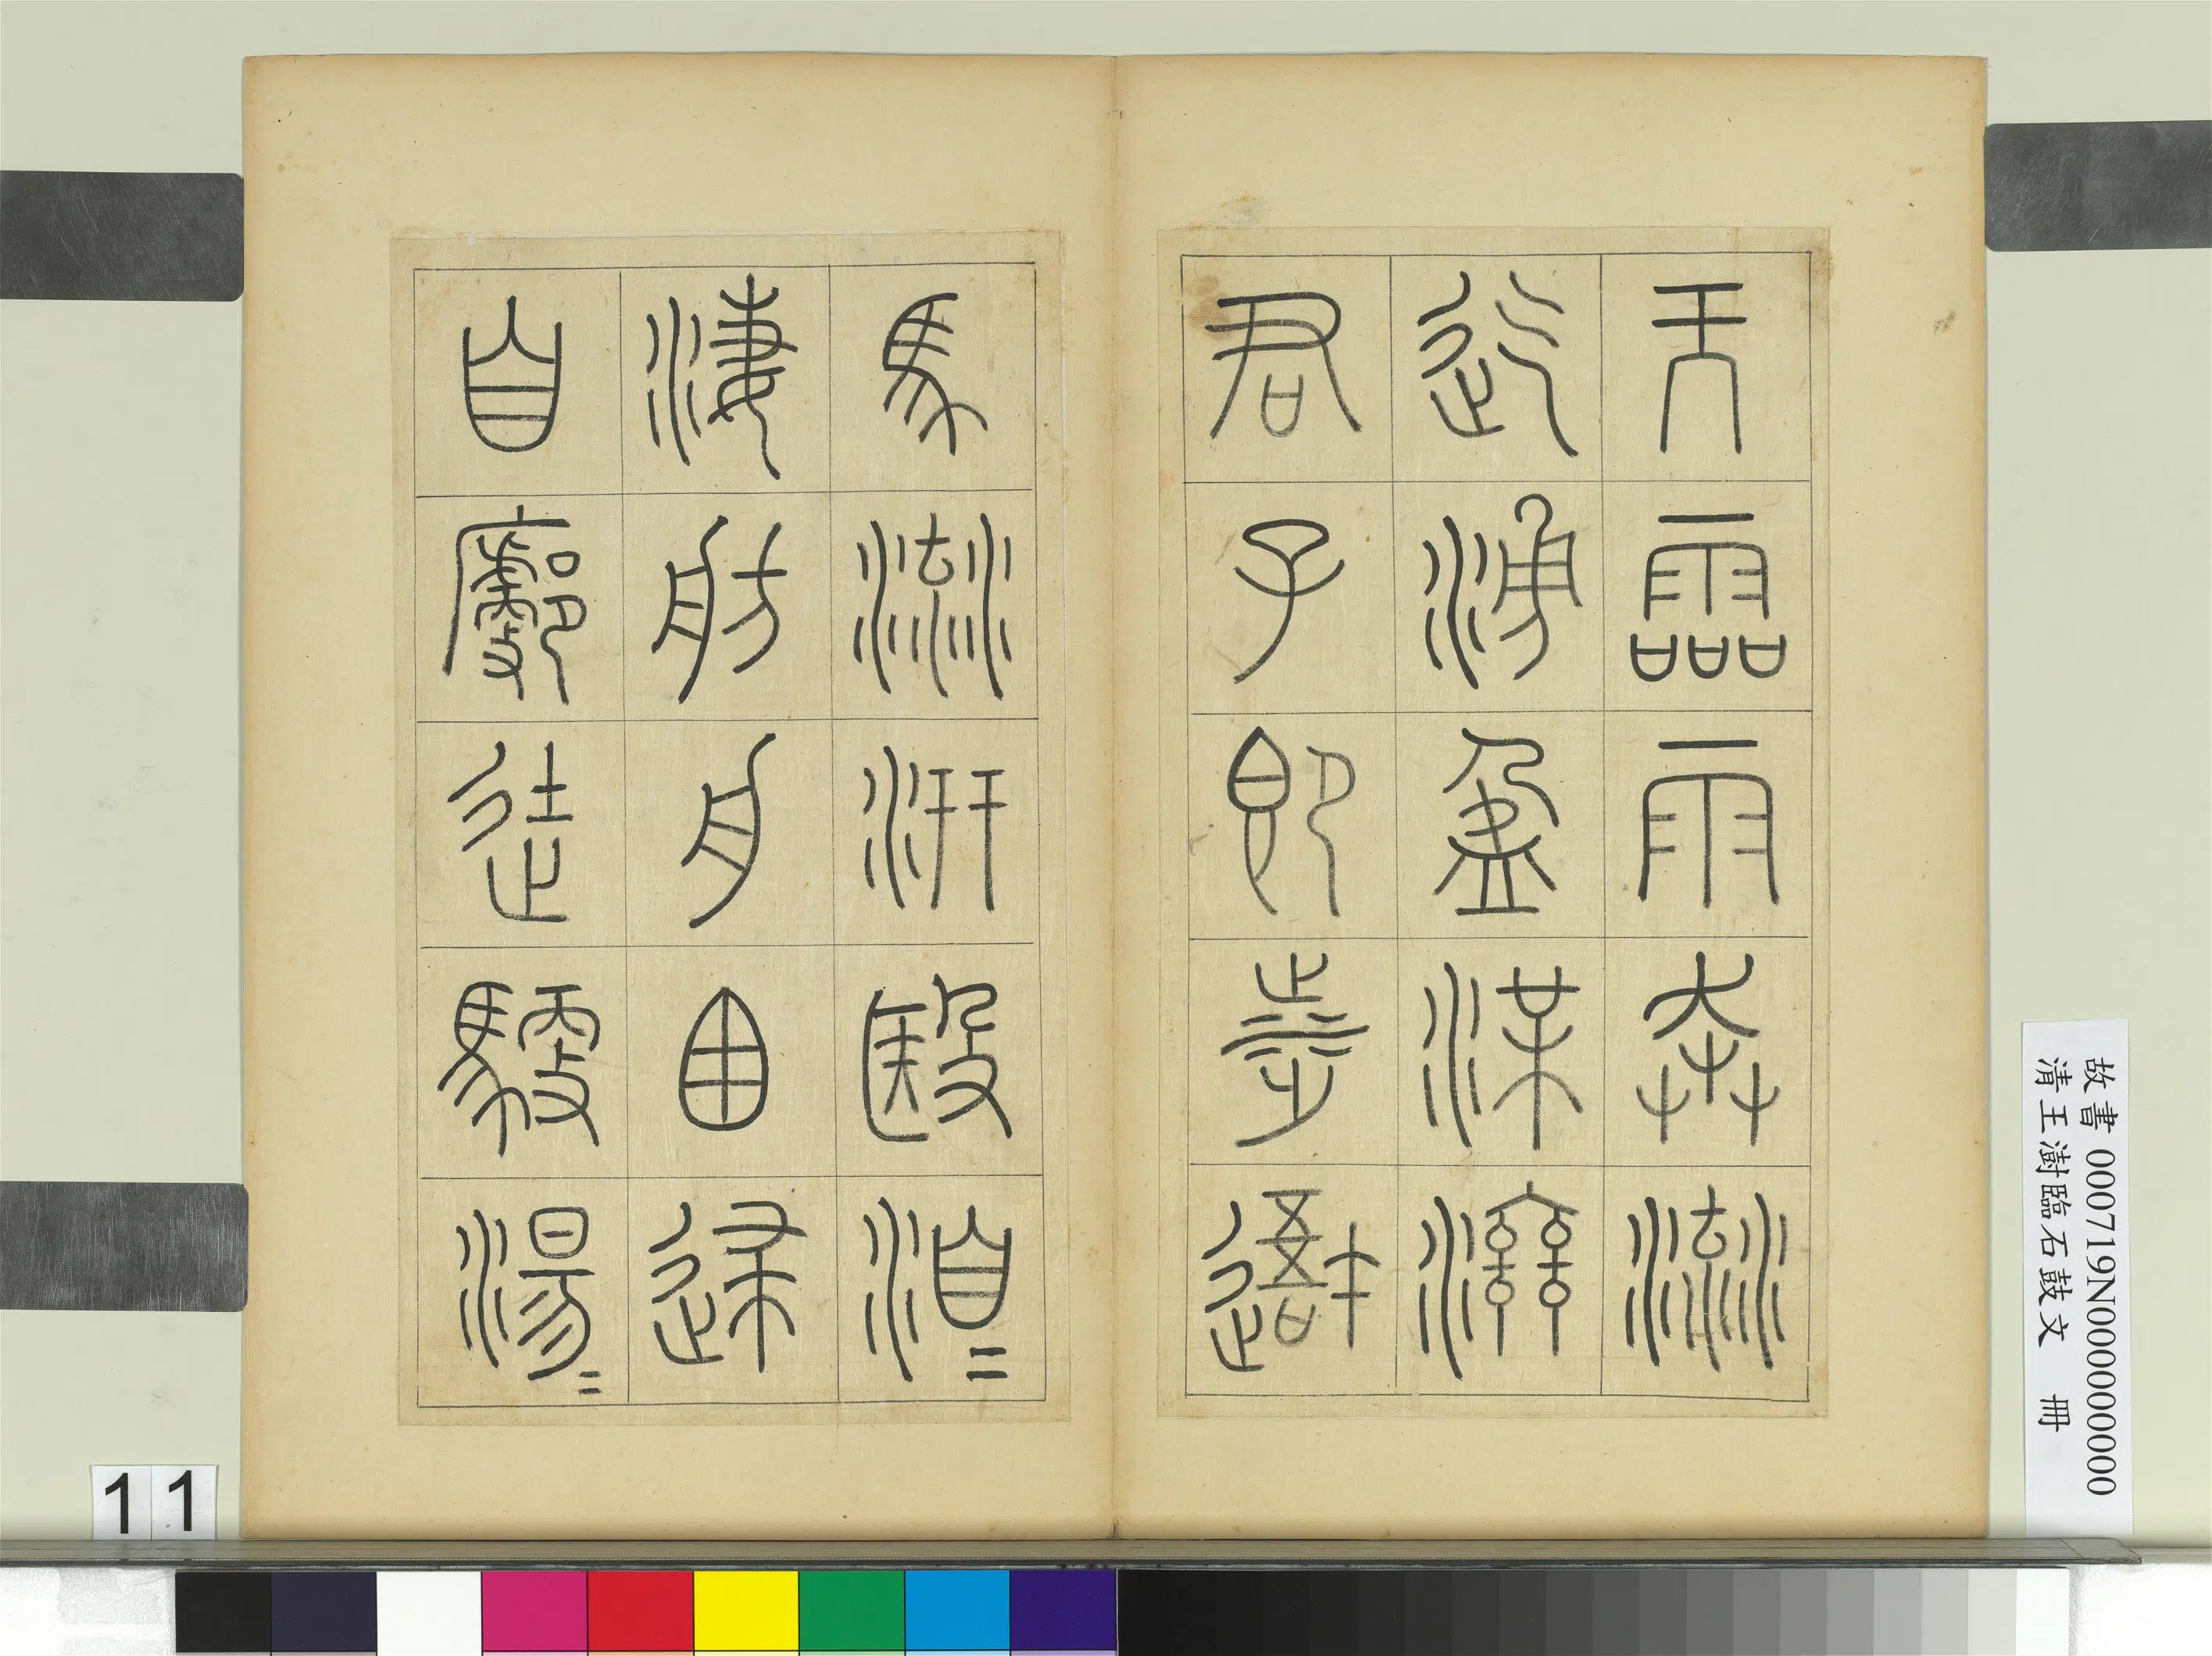 天霝雨奔流
迄湧盈渫濟
君子即涉
馬流汧殹洎=
淒舫舟囪逮
自徒馭湯=
故書 000719N000000000
清王澍臨石鼓文 冊
11